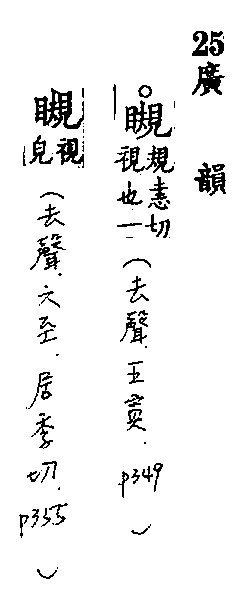 25 廣韻
○瞡 規恚切
視也一
(去聲.五寘. p349)
瞡 視
皃
(去聲.六至.居季切. p355)